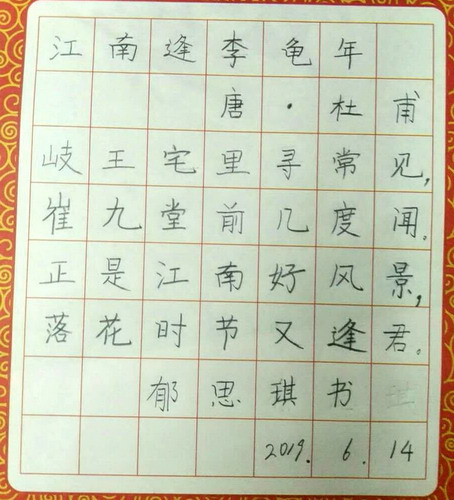 江南逢李龟年
唐·杜甫
岐王宅里寻常见,
崔九堂前几度闻。
正是江南好风景,
落花时节又逢君。
郁思琪书
2019.6.14